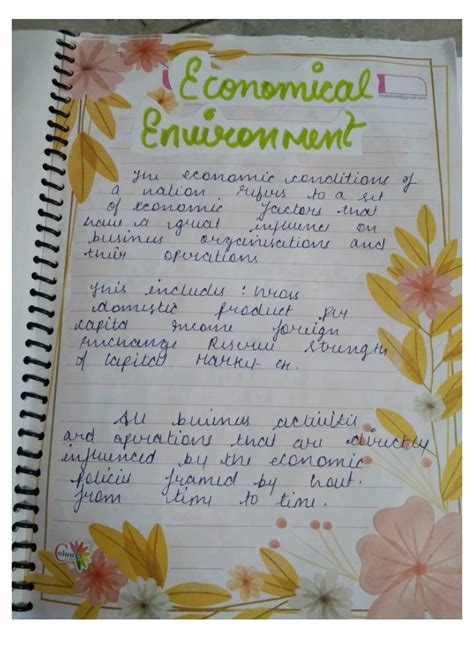 Economical
Environment
The economic conditions of
a nation refers to a set
of economic factors that
have a great influence on
business organisations and
their operations
This includes : Gross
domestic product per
capita income foreign
Exchange Reserve Strength
of capital Market
All business activities
and operations that are directly
influenced by the economic
policies framed by Govt.
from time to time.
Colour